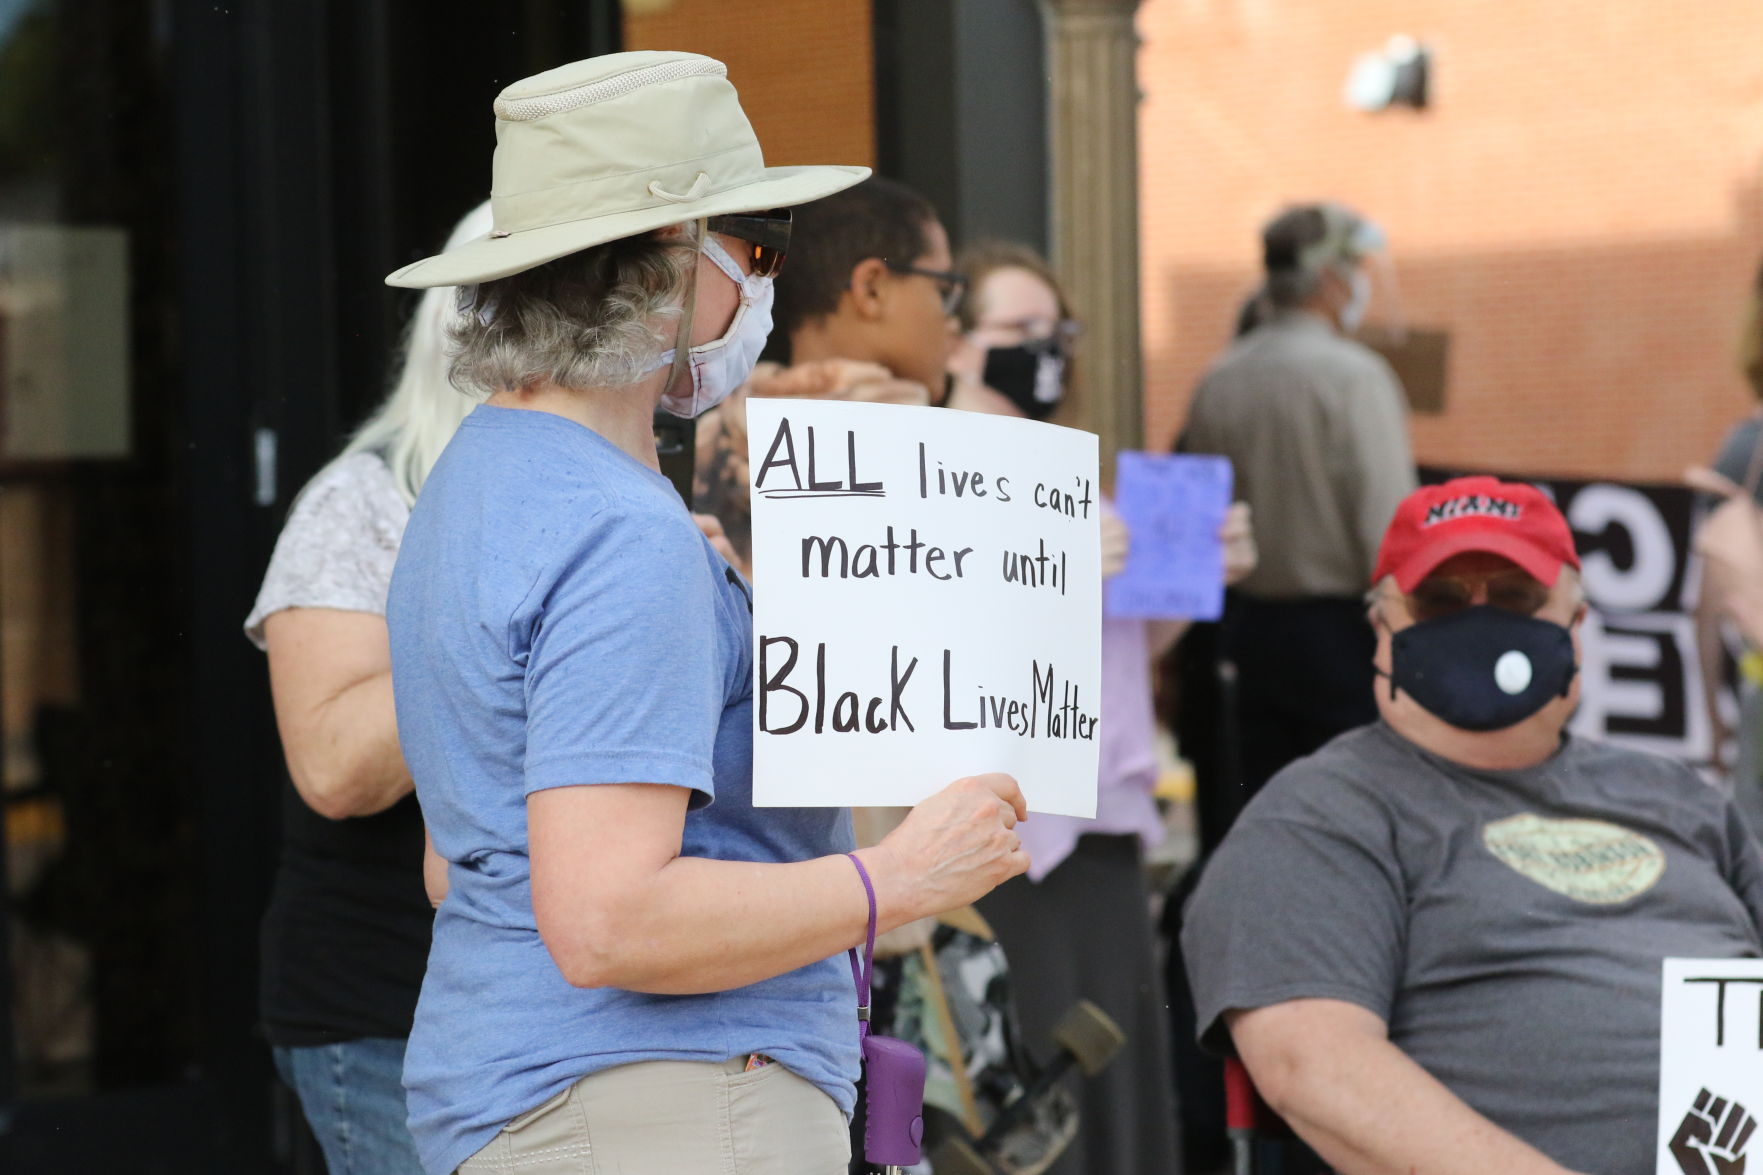 ALL lives can't
matter until
Black Lives Matter
MIAMI
T
C
E